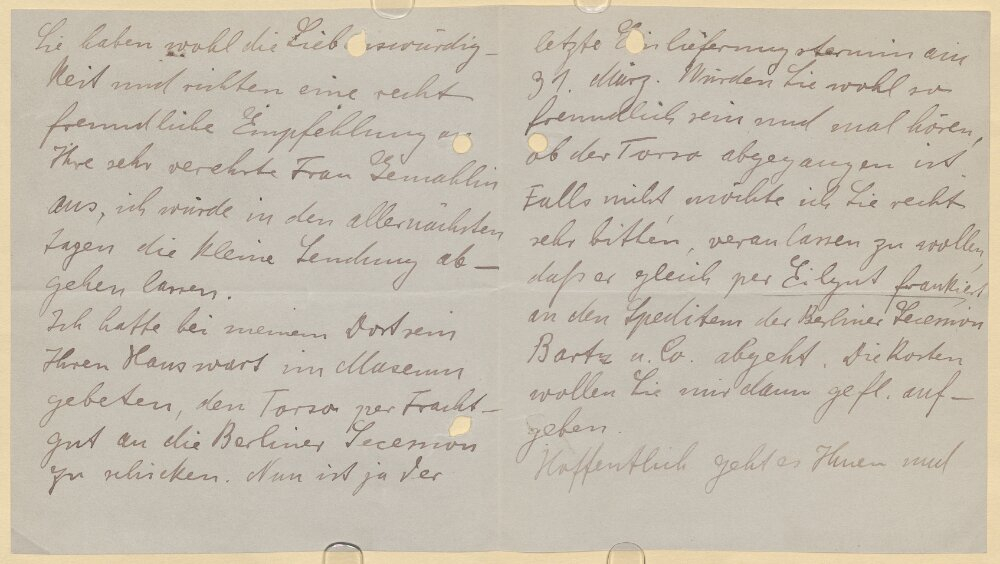 Sie haben wohl die Liebenswürdig-
keit und richten eine recht
freundliche Empfehlung an
Ihre sehr verehrte Frau Gemahlin
aus, ich würde in den allernächsten
Tagen die kleine Sendung ab-
gehen lassen.
Ich hatte bei meinem Dortsein
Ihren Hauswart im Museum
gebeten, den Torso per Fracht-
gut an die Berliner Secession
zu schicken. Nun ist ja der
letzte Einlieferungstermin am
31. März. Würden Sie wohl so
freundlich sein und mal hören,
ob der Torso abgegangen ist.
Falls nicht, möchte ich Sie recht
sehr bitten, veranlassen zu wollen,
daß er gleich per Eilgut frankiert
an den Spediteur der Berliner Secession
Bartz u. Co. abgeht. Die Kosten
wollen Sie mir dann gefl. auf-
geben.
Hoffentlich geht es Ihnen und